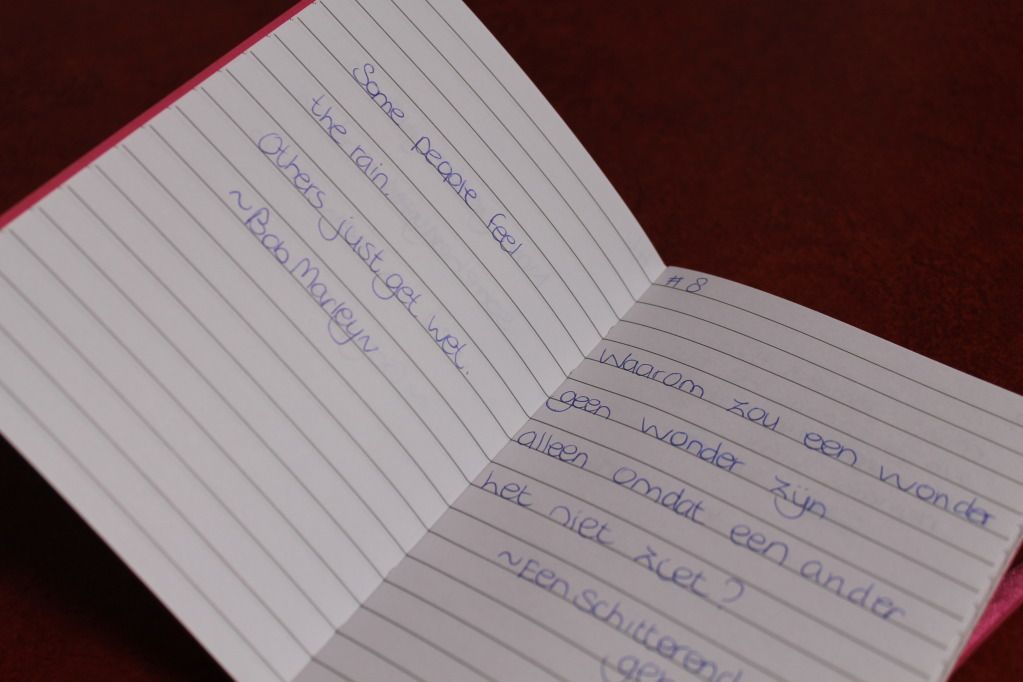 Some people feel
the rain.
Others just get wet.
~Bob Marley~
#8
Waarom zou een wonder
geen wonder zijn
alleen omdat een ander
het niet ziet?
~Een schitterend